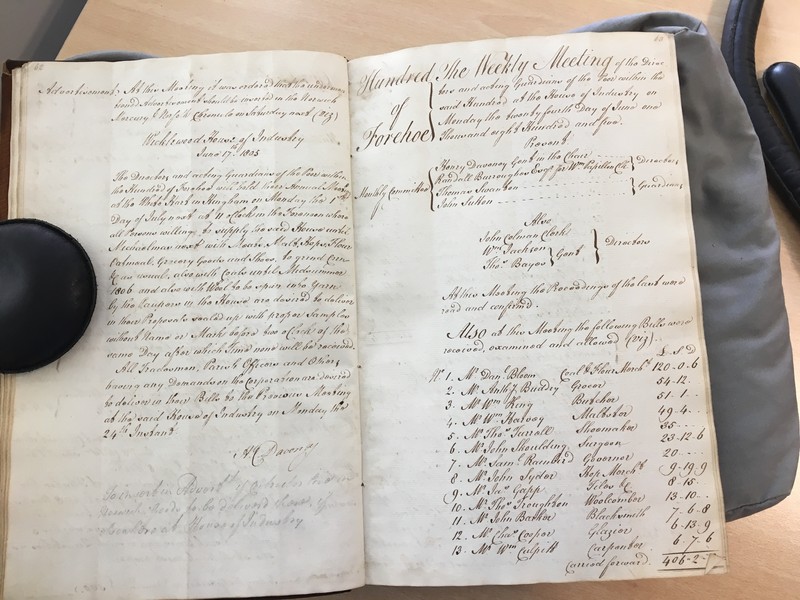 Advertisement, At this Meeting it was ordered that the undermen
tioned Advertisement should be inserted in the Norwich
Mercury & Norfolk Chronicle on Saturday next (Viz)
Wicklewood House of Industry
June 17th 1805
The Directors and acting Guardians of the Poor within
the Hundred of Forehoe will hold their Annual Meeting
at the White Hart in Hingham on Monday the 1st
Day of July next at 11 o'Clock in the Forenoon where
all Persons willing to supply the said House until
Michaelmas next with Meat, Malt, Hops, Flour
Oatmeal, Grocery Goods and Shoes, to grind Corn
&c as usual, also with Coals until Midsummer
1806 and also with Wool to be spun into Yarn
by the Paupers in the House are desired to deliver
in their Proposals sealed up with proper Samples
without Name or Mark before two o'Clock of the
same Day after which Time none will be received.
All Tradesmen, Parish Officers and Others
having any Demands on the Corporation are desired
to deliver in their Bills to the Previous Meeting
at the said House of Industry on Monday the
24th Instant
Davoney
House of Industry
Hundred of Forehoe
The Weekly Meeting of the Direc
tors and acting Guardians of the Poor within the
said Hundred at the House of Industry on
Monday the twenty fourth Day of June one
Thousand eight Hundred and five.
Present
Monthly Committee
Henry Davoney Gent in the Chair
Randall Burroughes Esqr for Wm Papillon Clk
Directors
Thomas Swanton
John Sutton
Guardians
Also
John Colman Clerk
Wm Jackson
Thos Bayes
Gent
Directors
At this Meeting the Proceedings of the last were
read and confirmed.
Also at this Meeting the following Bills were
received, examined and allowed (viz)
£ S D
No 1. Mr Danl Bloom Coal & Flour Mercht 120..0..6
2. Mr Anthy Buddry Grocer 54-12..
3. Mr Wm King Butcher 51..1..
4. Mr Wm Harvey Maltster 49..4..
5. Mr Thos Turrell Shoemaker 35
6. Mr John Shoulding Surgeon 23-12.6
7. Mr Saml Rainbird Governor 20
8. Mr John Sydor Hop Mercht 9-19.9
9. Mr Jas Gapp &c 8..15..
10. Mr Thos Troughton Woolcomber 13-10..
11. Mr John Barker Blacksmith 7..6..8
12. Mr Chas Cooper Glazier 6-13-9
13. Mr Wm Culpitt Carpenter 6..7..6
Carried forward 406-2-